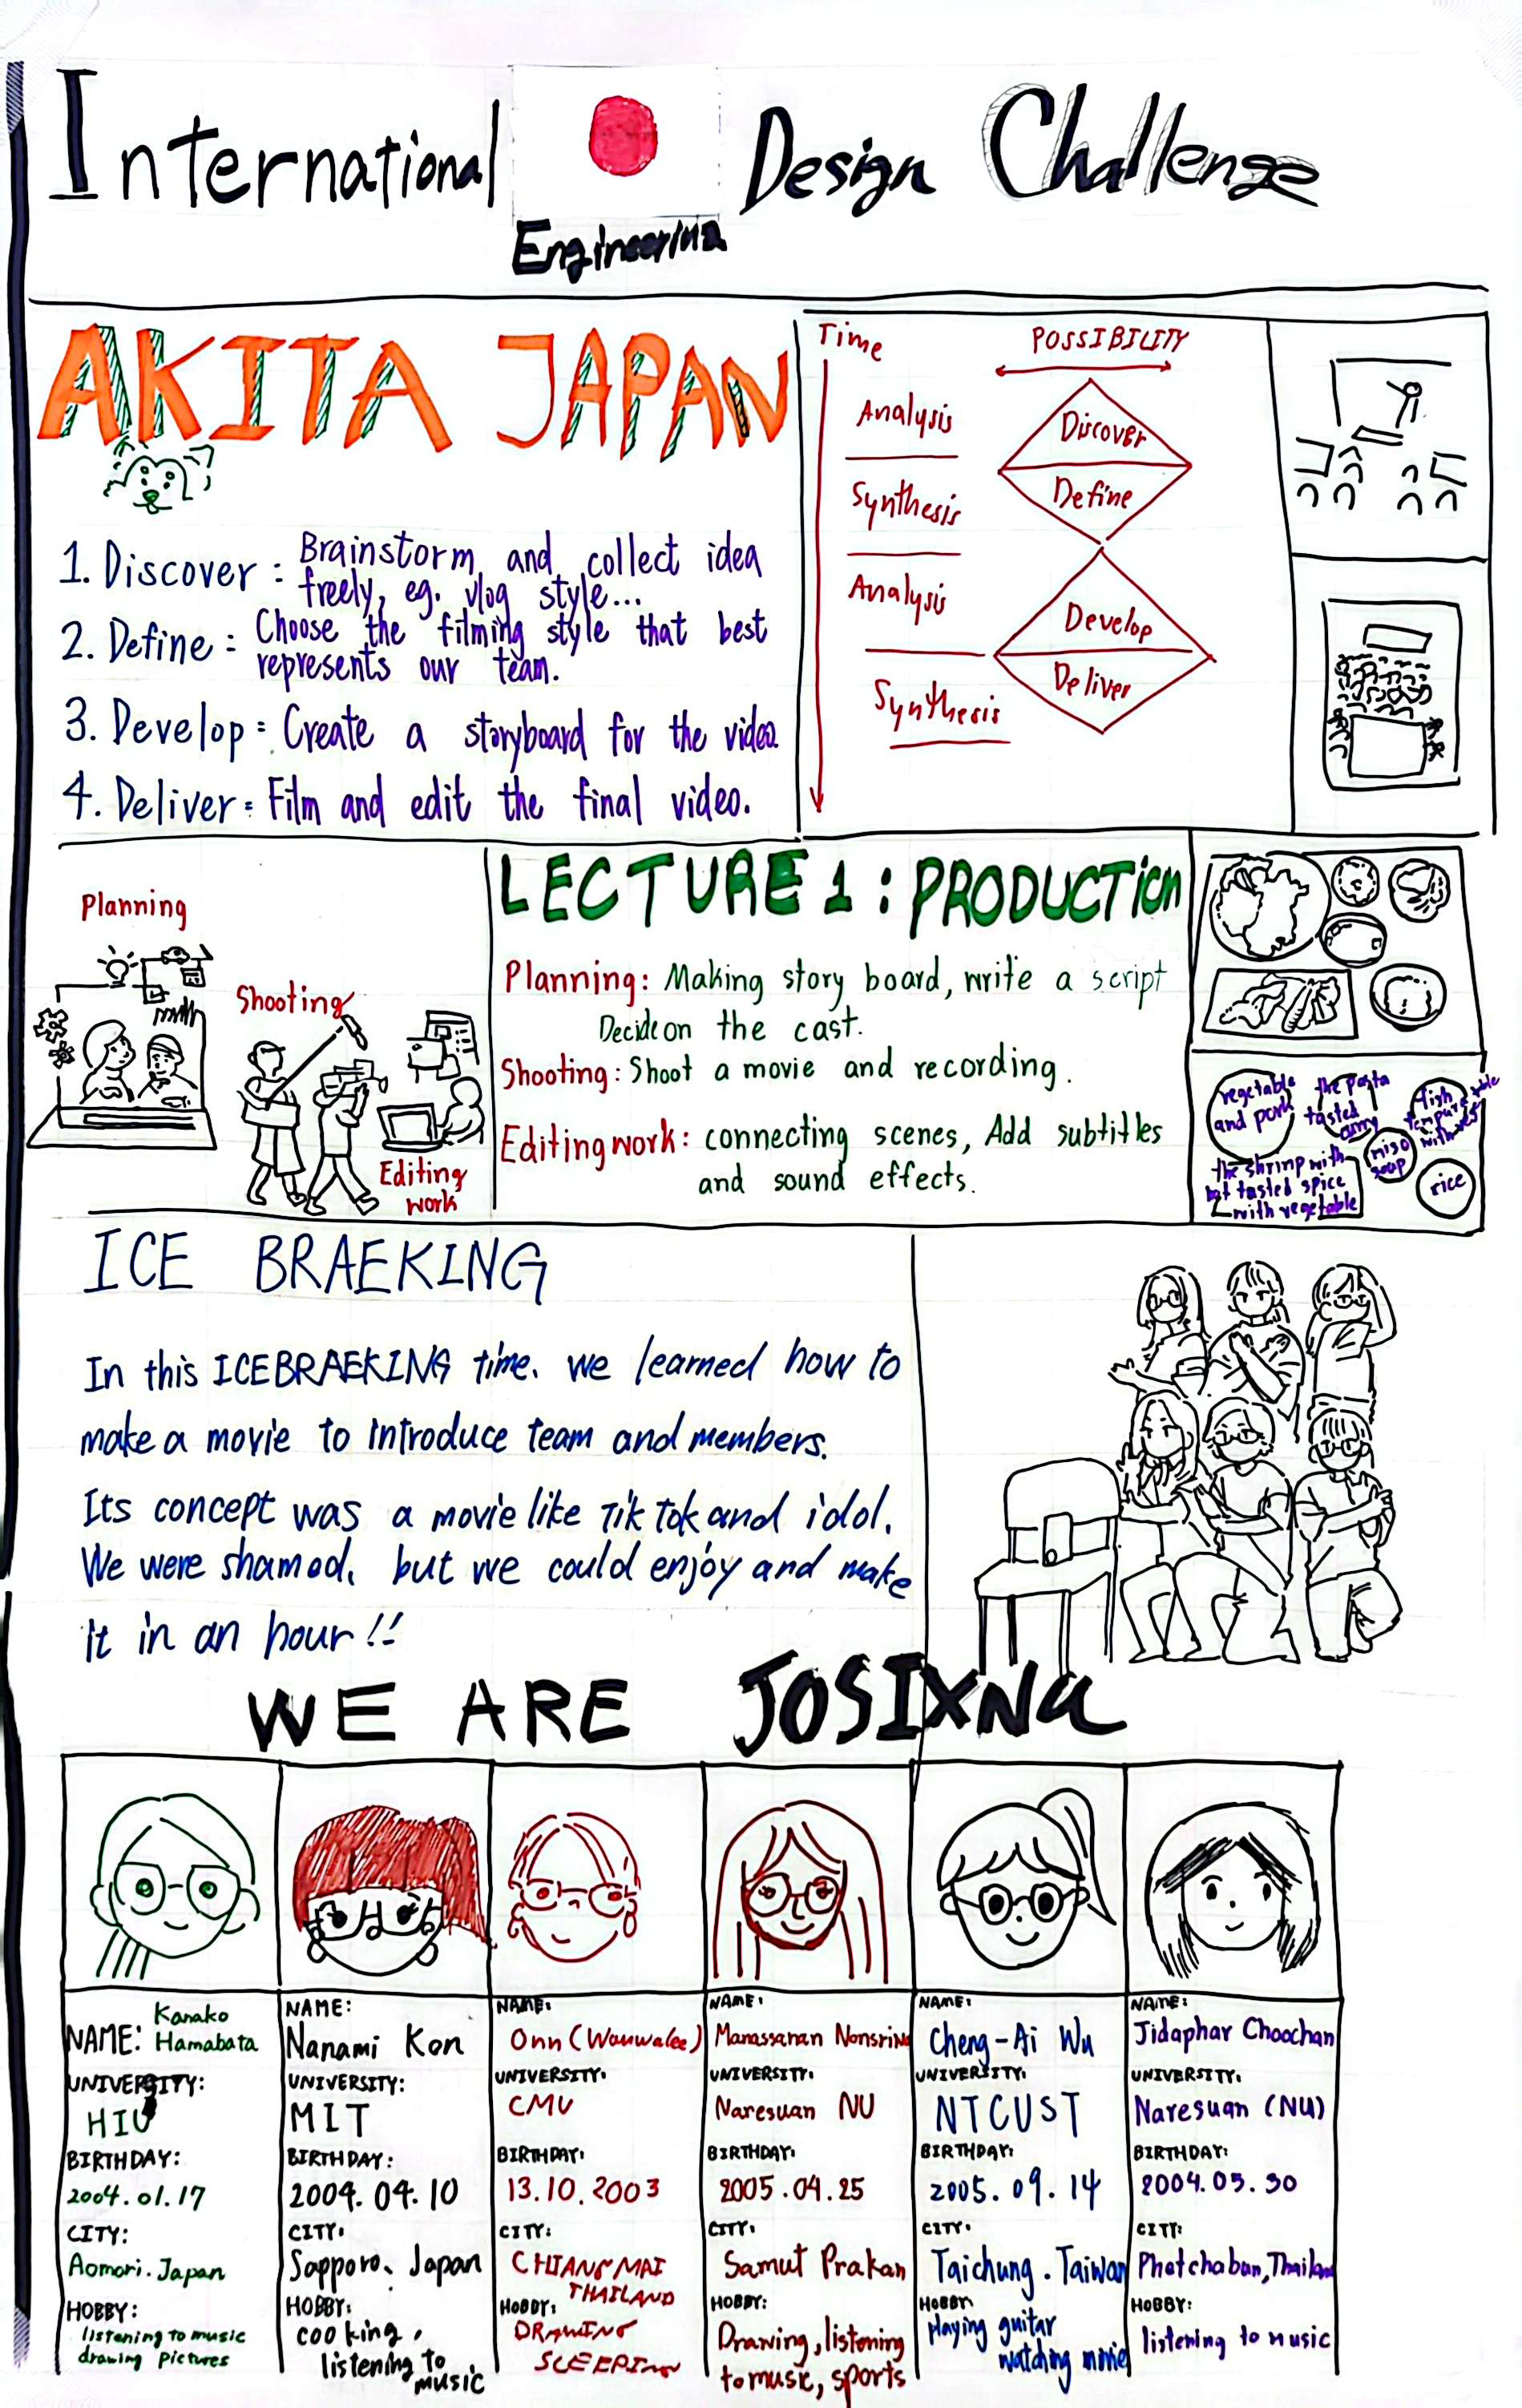 International Design Challenge
Engineering
AKITA JAPAN
1. Discover : Brainstorm and collect idea
freely, eg. vlog style...
2. Define : Choose the filming style that best
represents our team.
3. Develop : Create a storyboard for the video.
4. Deliver : Film and edit the final video.
Time
POSSIBILITY
Analysis
Discover
Synthesis
Define
Analysis
Develop
Synthesis
Deliver
Planning
Shooting
Editing
work
LECTURE 1 : PRODUCTION
Planning: Making story board, write a script
Decide on the cast.
Shooting: Shoot a movie and recording.
Editing work: connecting scenes, Add subtitles
and sound effects.
vegetable
and pork
the pasta
tasted
curry
fish
miso
soup
rice
the shrimp with
hot tasted spice
with vegetable
ICE BRAEKING
In this ICEBRAEKING time. we learned how to
make a movie to introduce team and members.
Its concept was a movie like TikTok and idol.
We were shamed, but we could enjoy and make
it in an hour!!
WE ARE JOSIXNa
NAME: Kanako
Hamabata
UNIVERSITY:
HIU
BIRTHDAY:
2004.01.17
CITY:
Aomori. Japan
HOBBY:
listening to music
drawing pictures
NAME:
Nanami Kon
UNIVERSITY:
MIT
BIRTHDAY:
2004. 04. 10
CITY:
Sapporo、Japan
HOBBY:
cooking,
listening to
music
NAME:
Onn (Wanwalee)
UNIVERSITY:
CMU
BIRTHDAY:
13.10.2003
CITY:
CHIANGMAI
THAILAND
HOBBY:
DRAWING
SLEEPING
NAME:
Manassanan Nonsrina
UNIVERSITY:
Naresuan NU
BIRTHDAY:
2005.04.25
CITY:
Samut Prakan
HOBBY:
Drawing, listening
to music, sports
NAME:
Cheng-Ai Wu
UNIVERSITY:
NTCUST
BIRTHDAY:
2005. 09. 14
CITY:
Taichung. Taiwan
HOBBY:
Playing guitar
watching movie
NAME:
Jidaphar Choochan
UNIVERSITY:
Naresuan (NU)
BIRTHDAY:
2004.05.30
CITY:
Phetchabun, Thailand
HOBBY:
listening to music